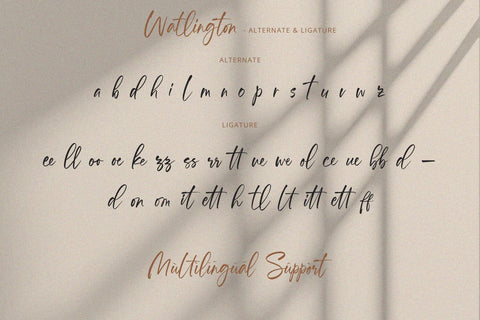 Watlington - ALTERNATE & LIGATURE
ALTERNATE
a b d h i l m n o p r s t u v w z
LIGATURE
ee ll oo oc ke zz ss rr tt ve we ol ce ue bb d –
d on om it ett h tl lt itt ett ff
Multilingual Support